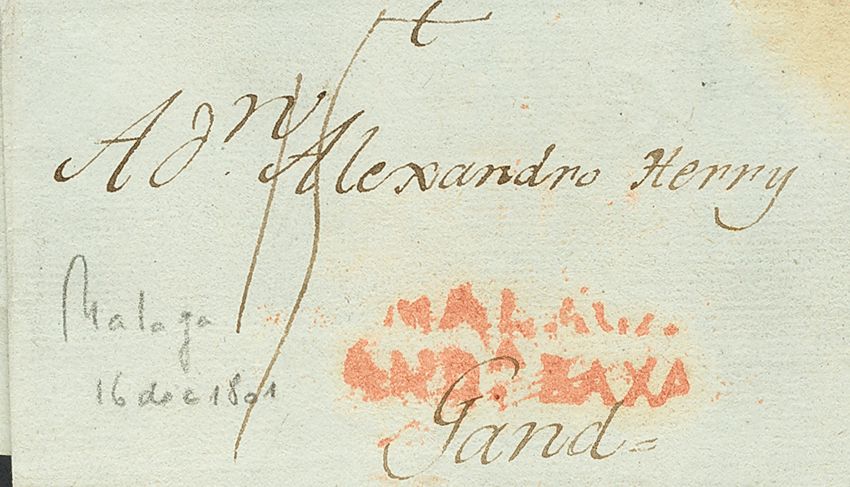 A Dn. Alexandro Herry
Malaga
16 dec 1801
ANDA BAXA
Gand=